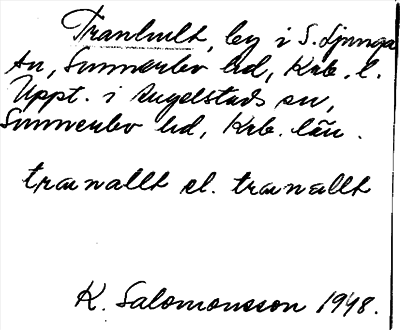 Tranhult, by i S. Ljunga
sn, Sunnerbo hd, Krb. l.
Uppt. i Angelstads sn,
Sunnerbo hd, Krb. län.
trænallt el. trænællt
K. Salomonsson 1948.